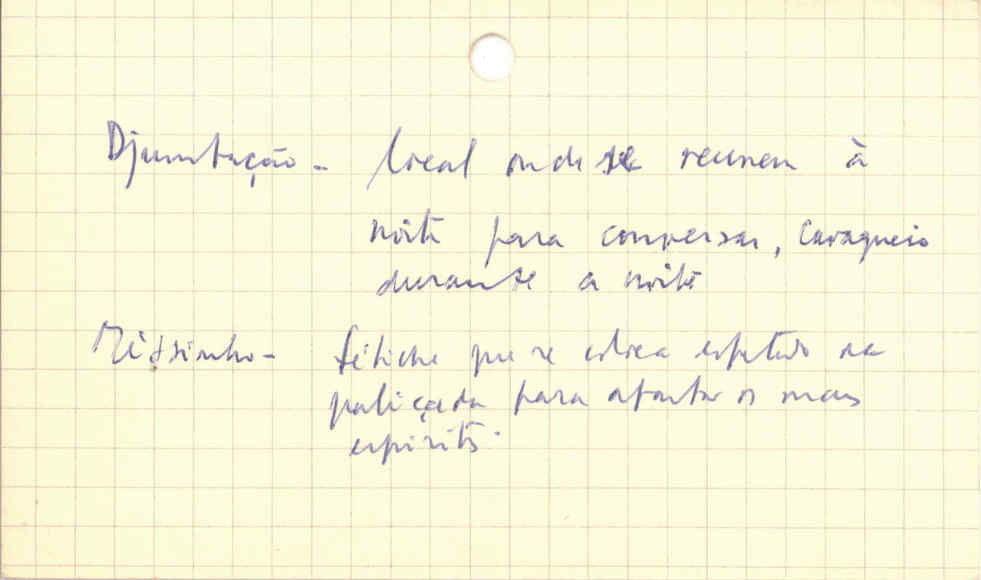 Djumbtação - local onde se reunem à
noite para conversar, cavaqueio
durante a noite
fétiche que se coloca espetado na
paliçada para afastar os maus
espiritos.